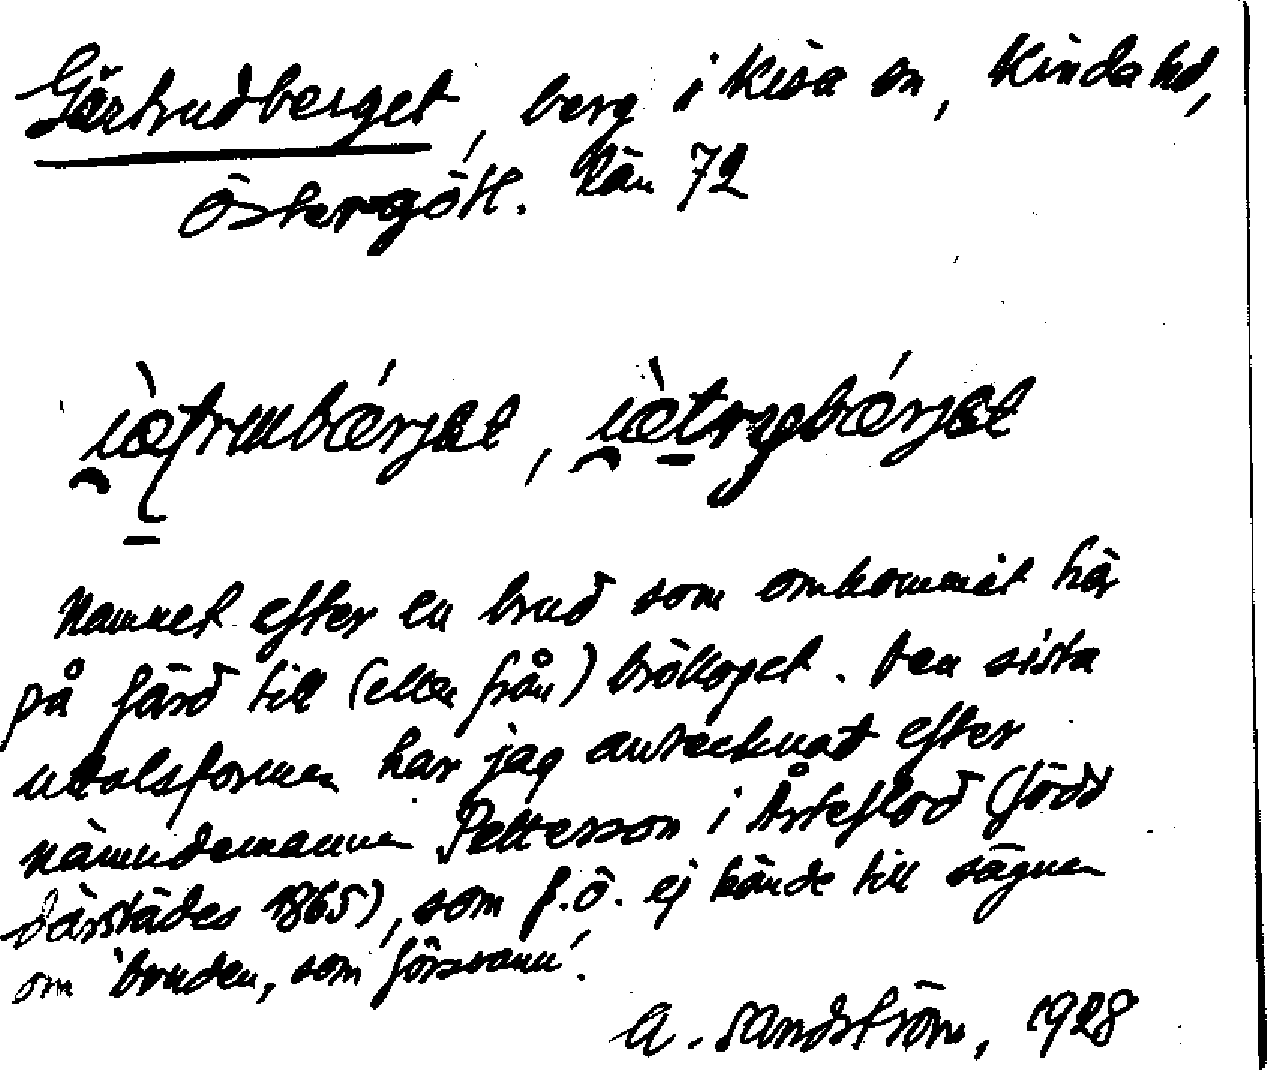 Gärtrudberget, berg i Kisa sn, Kinda hd,
Östergötl. län 72
i̯æ̀trubǽrjət, i̯æ̀trɡəbǽrjət
Namnet efter en brud som omkommit här
på färd till (eller från) bröllopet. Den sista
uttalsformen har jag antecknat efter
nämndemannen Pettersson i Årteflod (född
därstädes 1865), som f.ö. ej kände till sägnen
om 'bruden, som försvann'.
A. Sandström, 1928